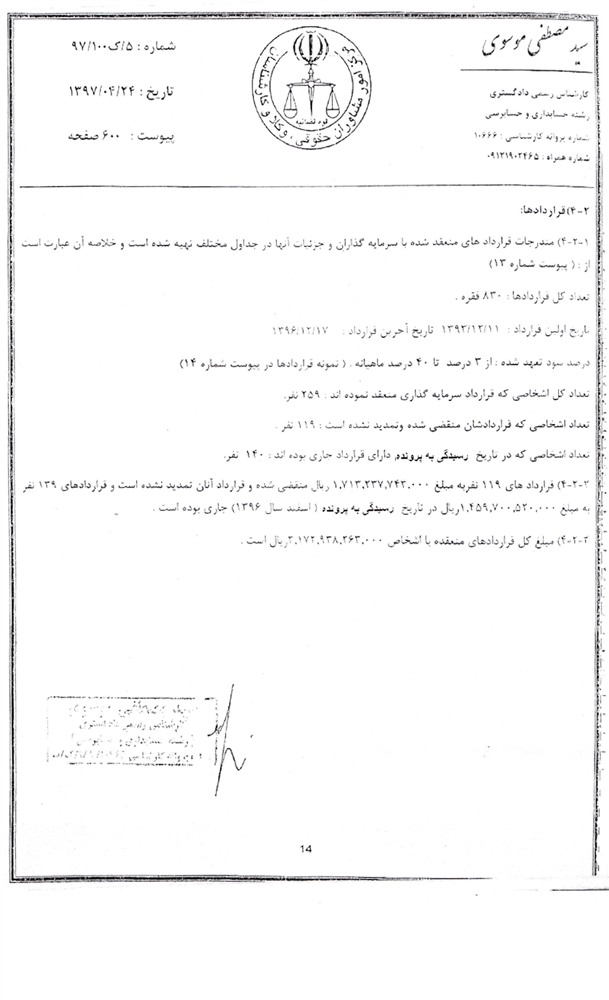 سید مصطفی موسوی
کارشناس رسمی دادگستری
رشته حسابداری و حسابرسی
شماره پروانه کارشناسی : ۱۰۶۶۶
شماره همراه : ۰۹۱۲۱۹۰۲۴۶۵
مرکز امور مشاوران حقوقی، وکلا و کارشناسان
قوه قضائیه
شماره : ۵/ک/۹۷/۱۰۰
تاریخ : ۱۳۹۷/۰۴/۲۴
پیوست : ۶۰۰ صفحه
۴-۲) قراردادها:
۴-۲-۱) مندرجات قرارداد های منعقد شده با سرمایه گذاران و جزئیات آنها در جداول مختلف تهیه شده است و خلاصه آن عبارت است
از : ( پیوست شماره ۱۳)
تعداد کل قراردادها : ۸۳۰ فقره .
تاریخ اولین قرارداد : ۱۳۹۲/۱۲/۱۱ تاریخ آخرین قرارداد : ۱۳۹۶/۱۲/۱۷
درصد سود تعهد شده : از ۳ درصد تا ۴۰ درصد ماهیانه . ( نمونه قراردادها در پیوست شماره ۱۴)
تعداد کل اشخاصی که قرارداد سرمایه گذاری منعقد نموده اند : ۲۵۹ نفر.
تعداد اشخاصی که قراردادشان منقضی شده وتمدید نشده است : ۱۱۹ نفر .
تعداد اشخاصی که در تاریخ رسیدگی به پرونده، دارای قرارداد جاری بوده اند : ۱۴۰ نفر.
۴-۲-۲) قرارداد های ۱۱۹ نفربه مبلغ ۱,۷۱۳,۲۳۷,۷۴۳,۰۰۰ ریال منقضی شده و قرارداد آنان تمدید نشده است و قراردادهای ۱۳۹ نفر
به مبلغ ۱,۴۵۹,۷۰۰,۵۲۰,۰۰۰ریال در تاریخ رسیدگی به پرونده ( اسفند سال ۱۳۹۶) جاری بوده است .
مبلغ کل قراردادهای منعقده با اشخاص ۳,۱۷۲,۹۳۸,۲۶۳,۰۰۰ریال است .
کارشناس رسمی دادگستری
14